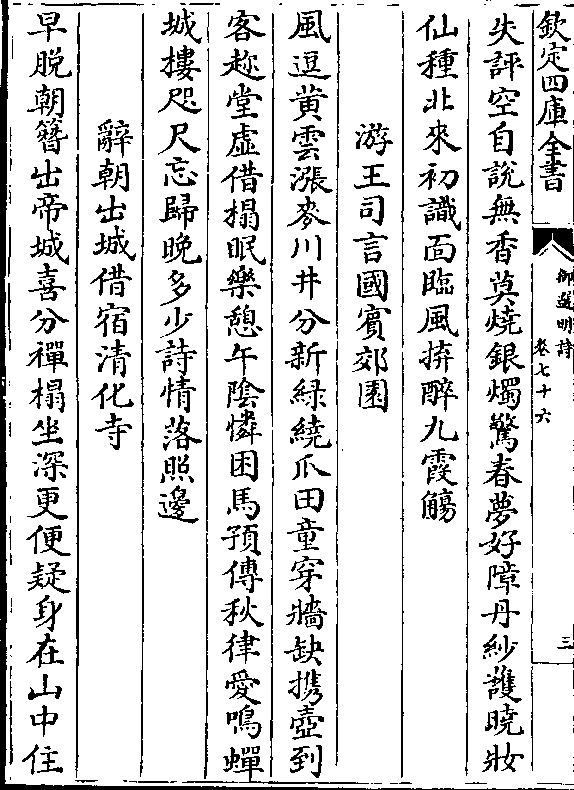 欽定四庫全書
御選明詩 卷七十六
三
失評空自說無香莫燒銀燭驚春夢好障丹紗護曉妝
仙種北來初識面臨風拚醉九霞觴
游王司言國賓郊園
風逗黃雲漲麥川井分新綠繞爪田童穿牆缺携壺到
客趂堂虛借榻眠樂憩午陰憐困馬預傳秋律愛鳴蟬
城樓咫尺忘歸晚多少詩情落照邊
辭朝出城借宿清化寺
早脫朝簪出帝城喜分禪榻坐深更便疑身在山中住